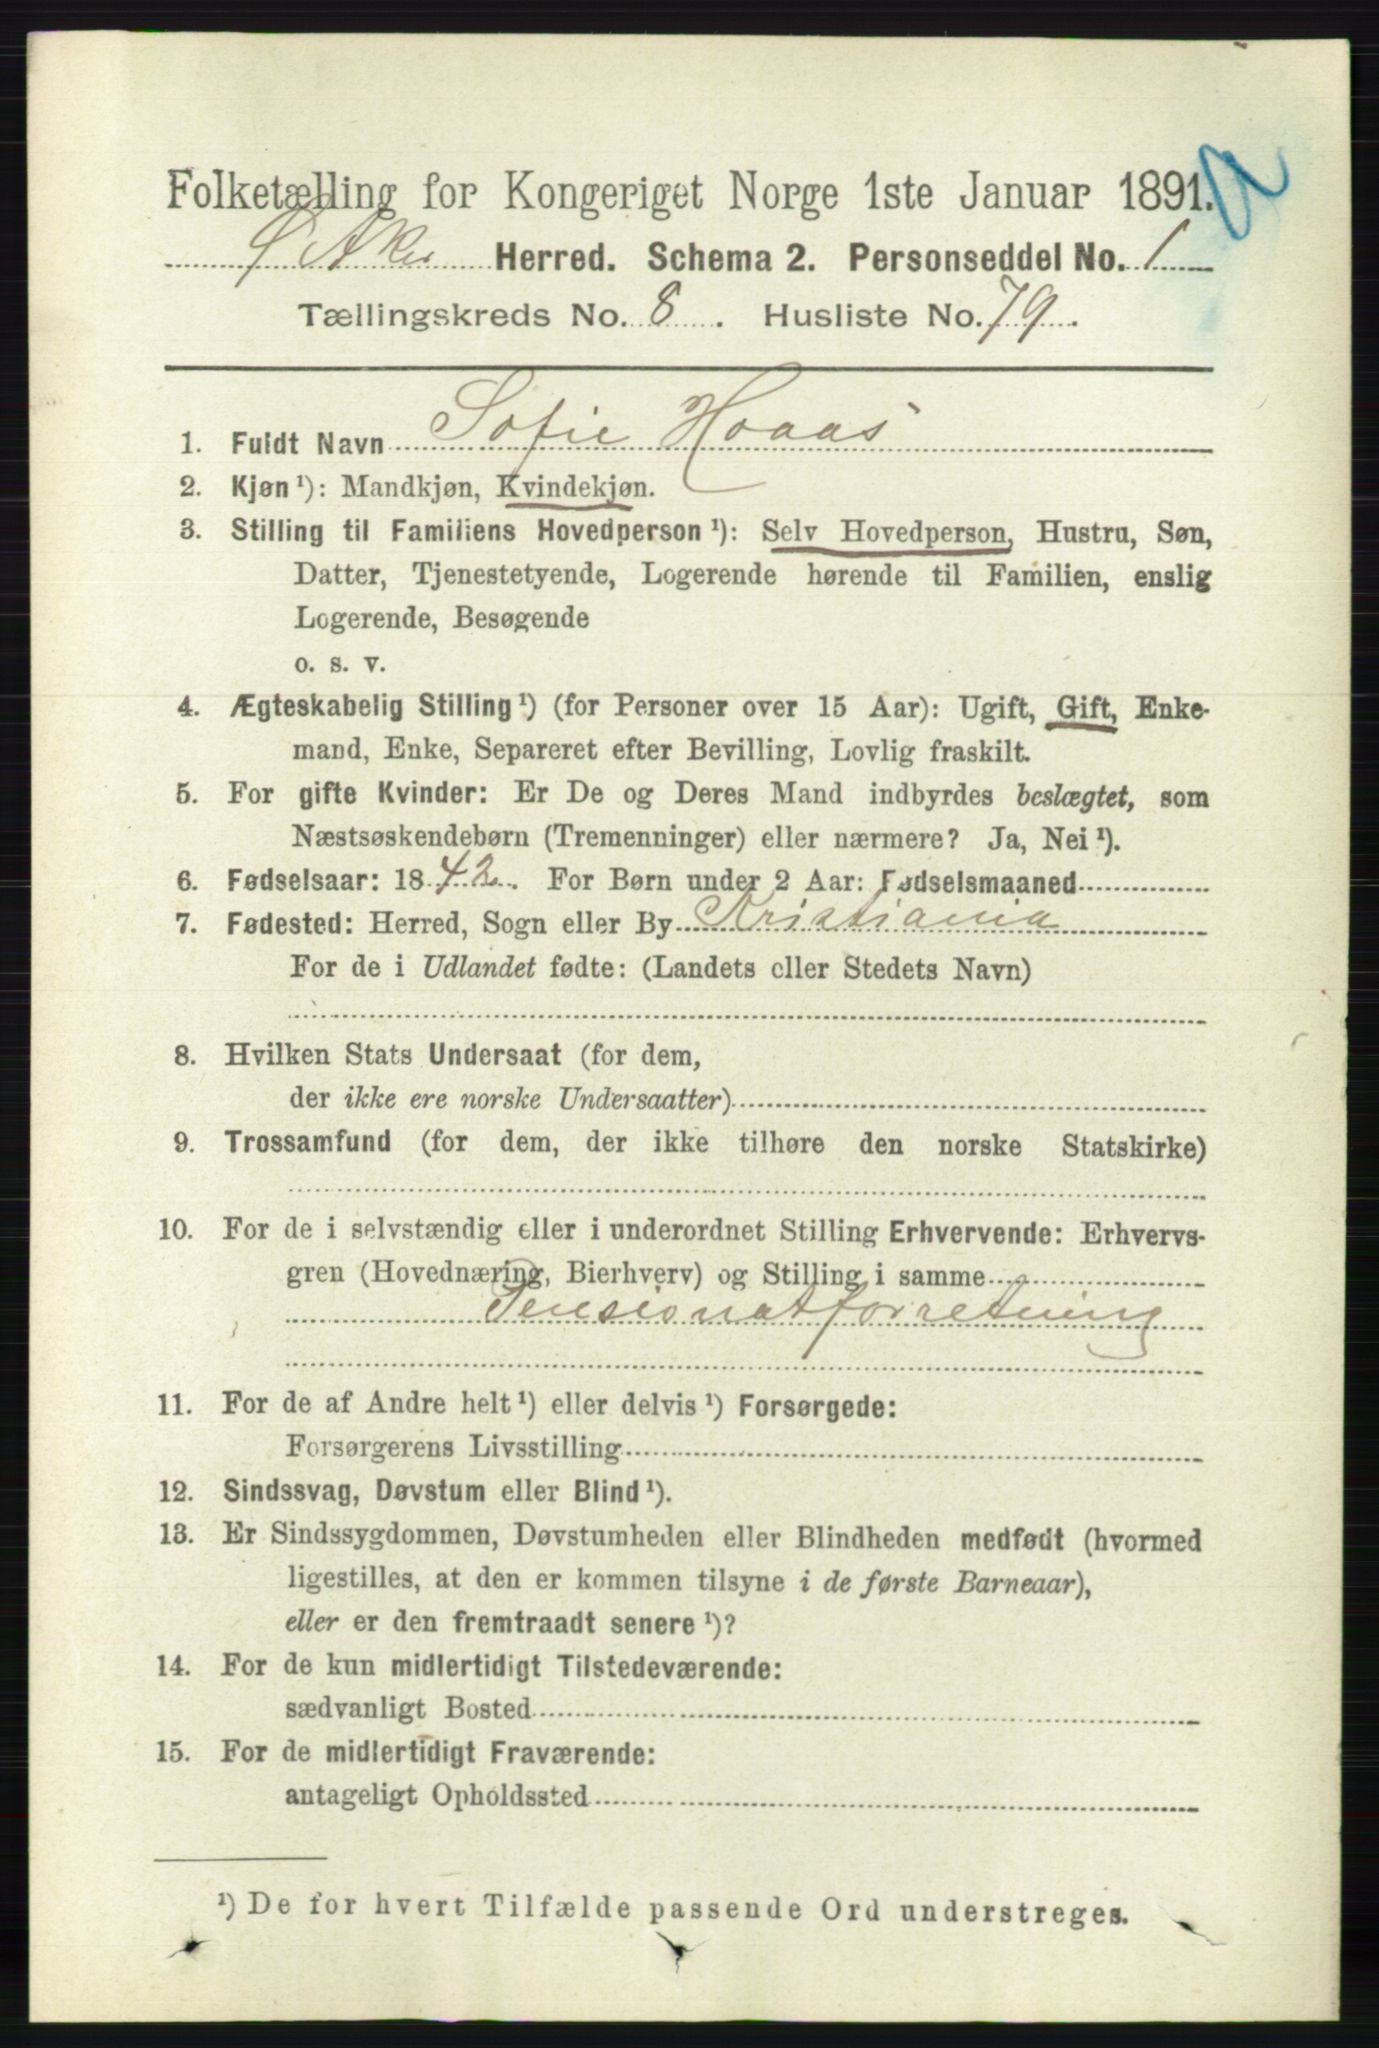 Folketælling for Kongeriget Norge 1ste Januar 1891.
Ø Aker Herred. Schema 2. Personseddel No. 1
Tællingskreds No. 8. Husliste No. 79.
1. Fuldt Navn Sofie Hoaas
2. Kjøn ¹): Mandkjøn, Kvindekjøn.
3. Stilling til Familiens Hovedperson ¹): Selv Hovedperson, Hustru, Søn,
Datter, Tjenestetyende, Logerende hørende til Familien, enslig
Logerende, Besøgende
o. s. v.
4. Ægteskabelig Stilling ¹) (for Personer over 15 Aar): Ugift, Gift, Enke-
mand, Enke, Separeret efter Bevilling, Lovlig fraskilt.
5. For gifte Kvinder: Er De og Deres Mand indbyrdes beslægtet, som
Næstsøskendebørn (Tremenninger) eller nærmere? Ja, Nei ¹).
6. Fødselsaar: 1842. For Børn under 2 Aar: Fødselsmaaned
7. Fødested: Herred, Sogn eller By Kristiania
For de i Udlandet fødte: (Landets eller Stedets Navn)
8. Hvilken Stats Undersaat (for dem,
der ikke ere norske Undersaatter)
9. Trossamfund (for dem, der ikke tilhøre den norske Statskirke)
10. For de i selvstændig eller i underordnet Stilling Erhvervende: Erhvervs-
gren (Hovednæring, Bierhverv) og Stilling i samme
Pensionatforretning
11. For de af Andre helt ¹) eller delvis ¹) Forsørgede:
Forsørgerens Livsstilling
12. Sindssvag, Døvstum eller Blind ¹).
13. Er Sindssygdommen, Døvstumheden eller Blindheden medfødt (hvormed
ligestilles, at den er kommen tilsyne i de første Barneaar),
eller er den fremtraadt senere ¹)?
14. For de kun midlertidigt Tilstedeværende:
sædvanligt Bosted
15. For de midlertidigt Fraværende:
antageligt Opholdssted
¹) De for hvert Tilfælde passende Ord understreges.